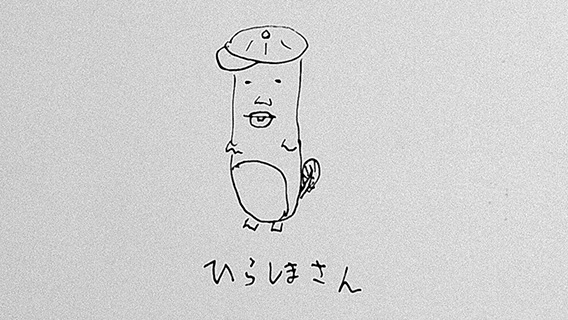 ひらしまさん